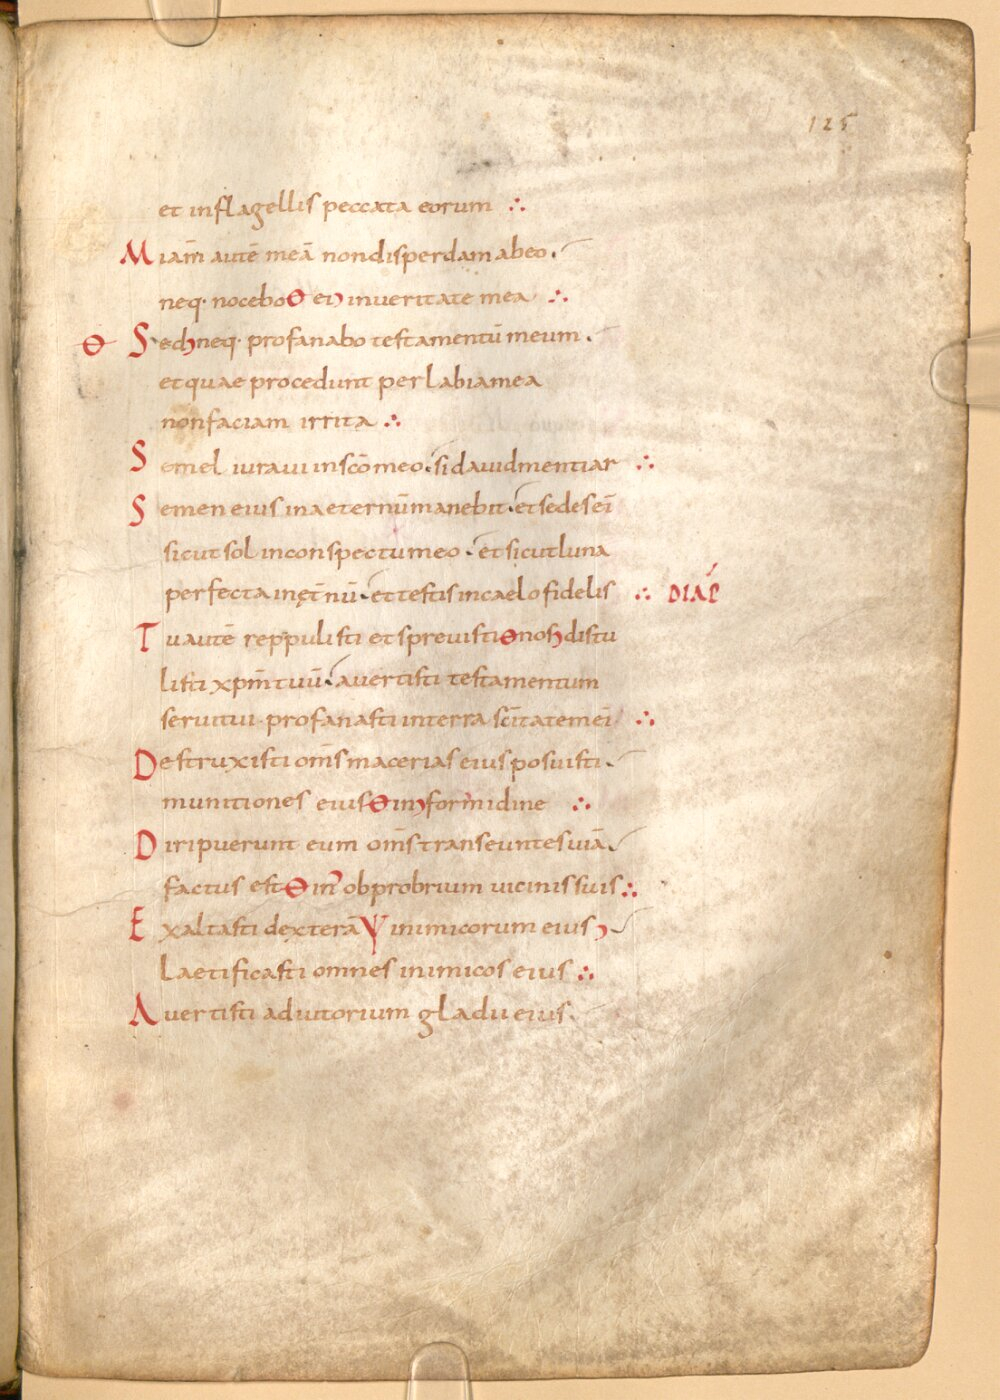 125
et inflagellis peccata eorum ∴
Miam̄ autē meā nondisperdam abeo.
neq· nocebo θ ei inueritate mea ∴
θ Sed neq· profanabo testamentū meum .
etquae procedunt per labiamea
nonfaciam irrita ∴
Semel iuraui insc̄o meo. si dauid mentiar ∴
Semen eius inaeternū manebit. et sedes ei̅
sicut sol inconspectu meo . et sicut luna
perfecta inęt̄nū . et testis incaelo fidelis ∴ DIAP̄
Tu autē reppulisti et sprevisti θ nos distu
listi xpm̄ tuū . avertisti testamentum
seruitui· profanasti interra sc̄itatem ei̅ ∴
Destruxisti om̄s macerias eius posuisti.
munitiones eius θ in formidine ∴
Diripuerunt eum om̄s transeuntes uiā.
factus est θ in obprobrium uicinis suis ∴
Exaltasti dexterā Ψ inimicorum eius
Laetificasti omnes inimicos eius ∴
Auertisti adiutorium gladii eius.